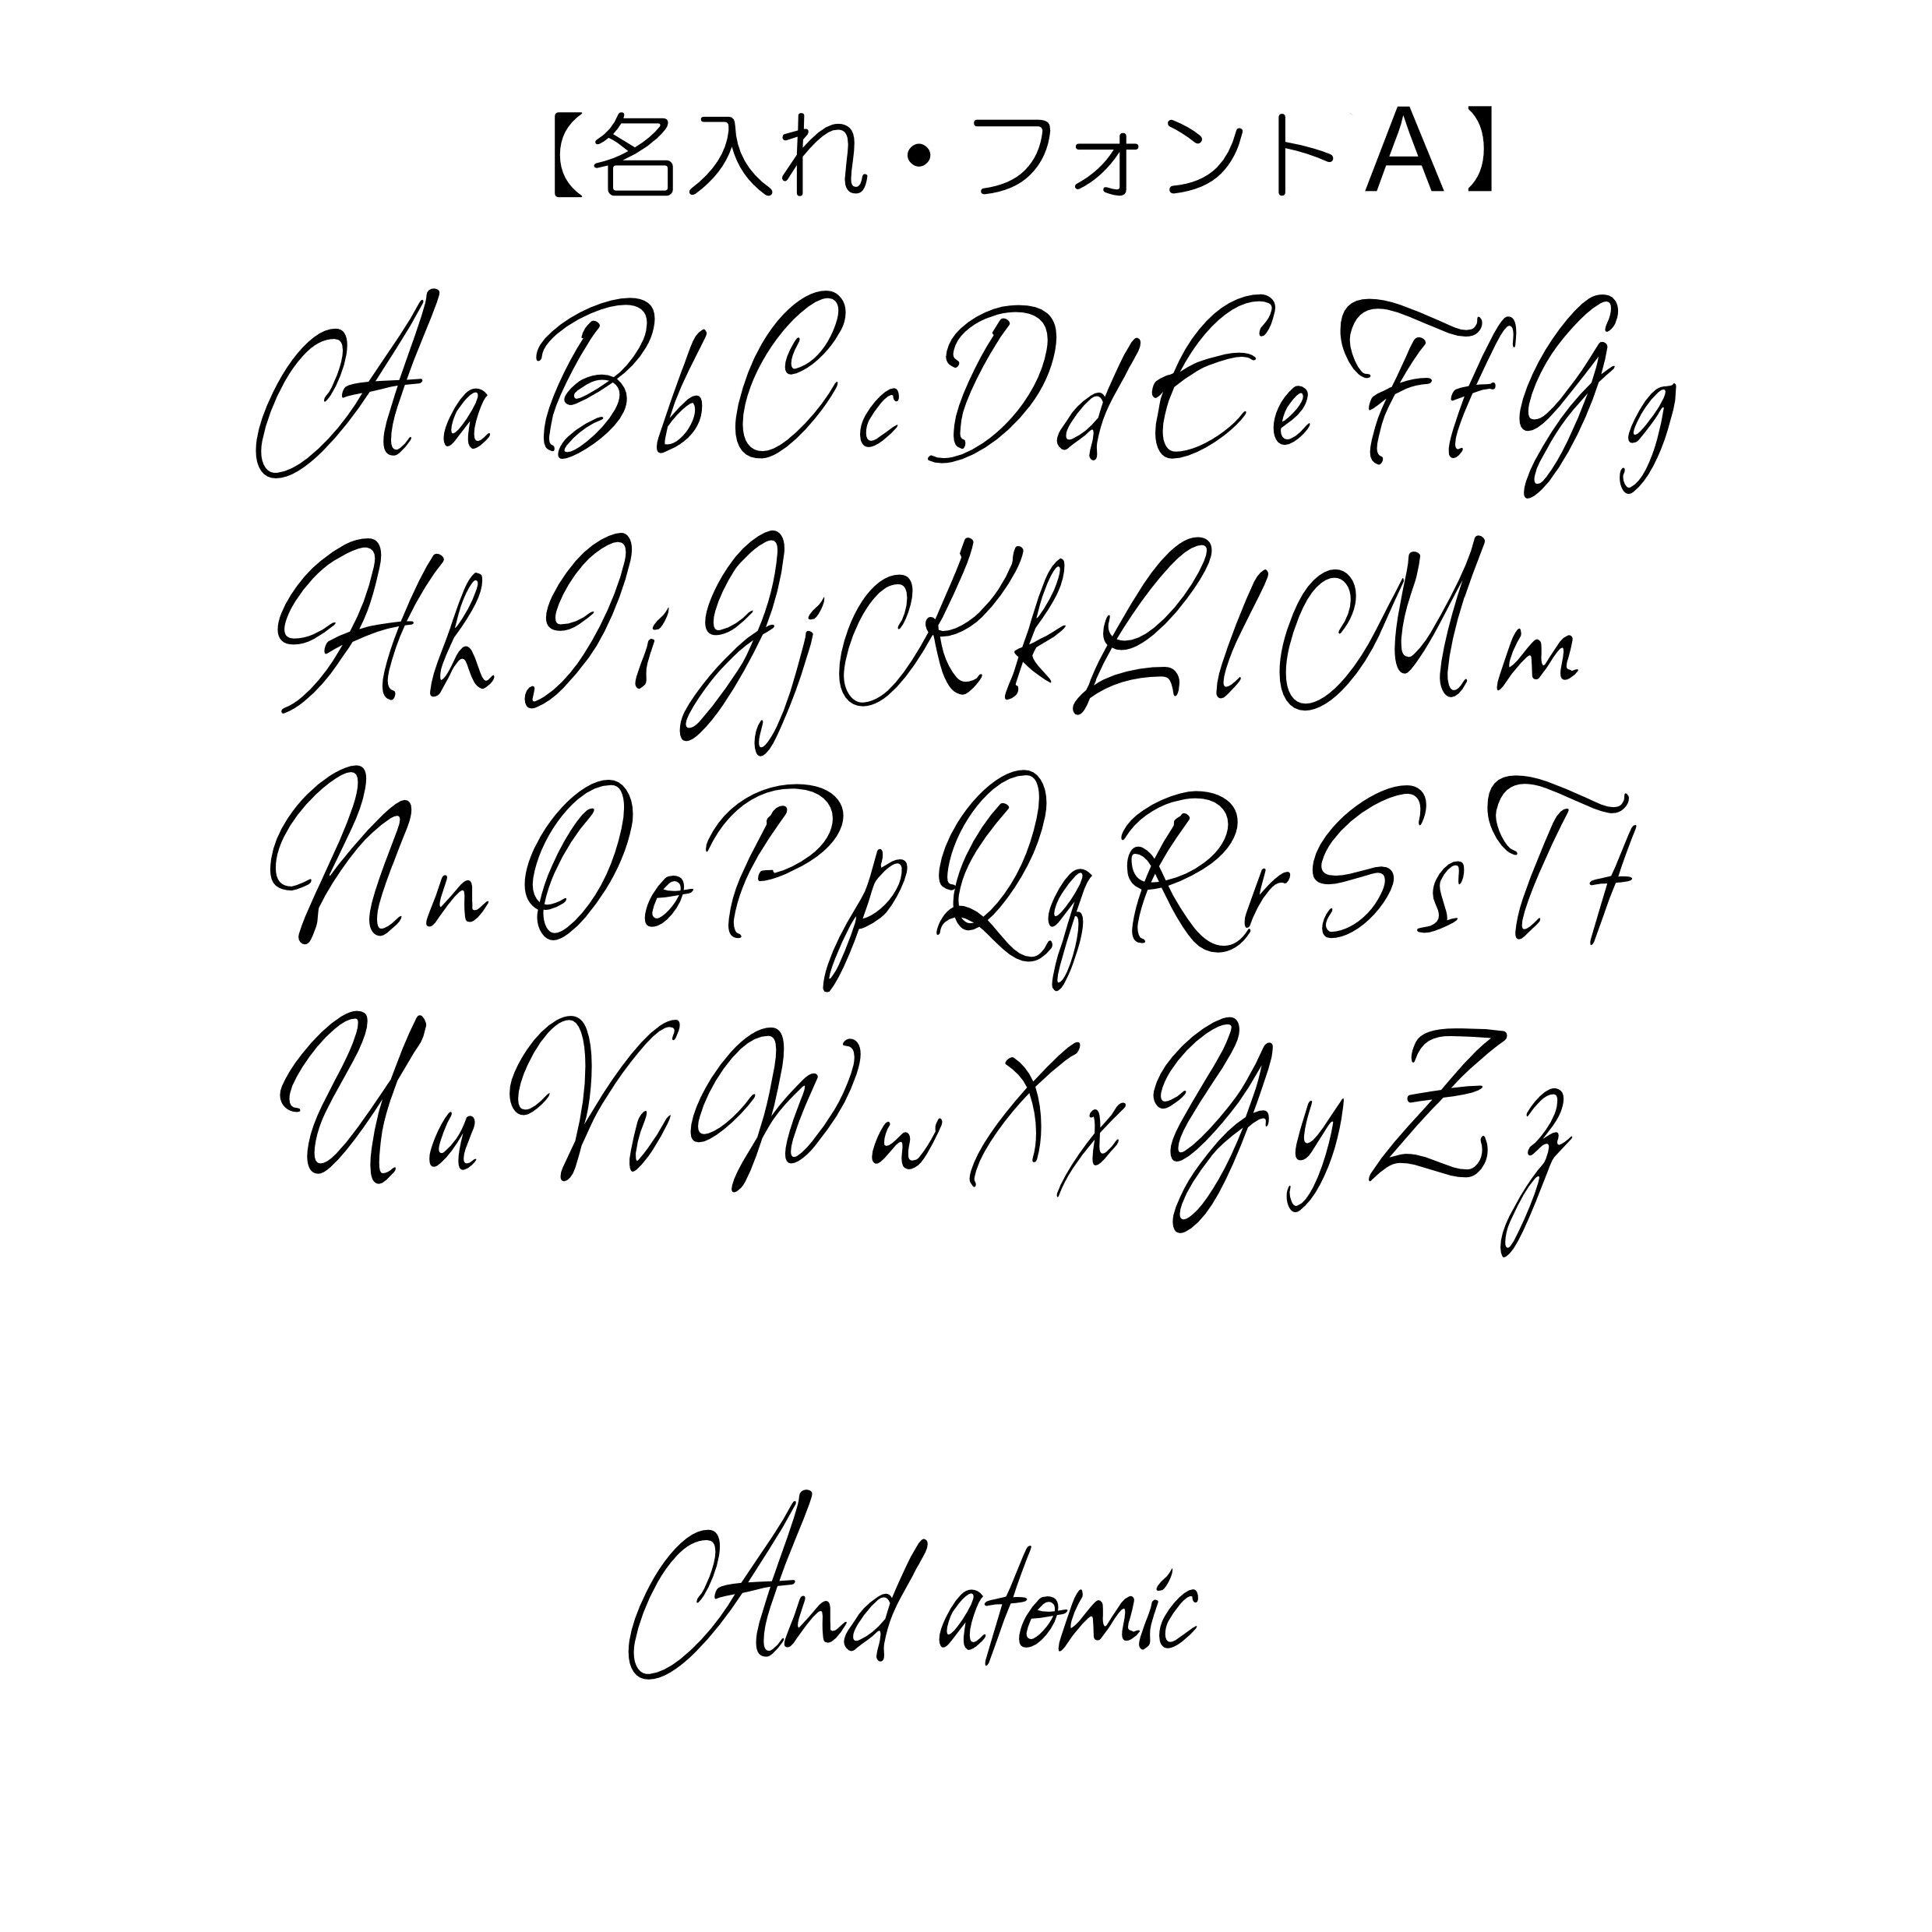 【名入れ・フォントA】
Aa Bb Cc Dd Ee Ff Gg
Hh Ii Jj Kk Ll Mm
Nn Oo Pp Qq Rr Ss Tt
Uu Vv Ww Xx Yy Zz
And atomic